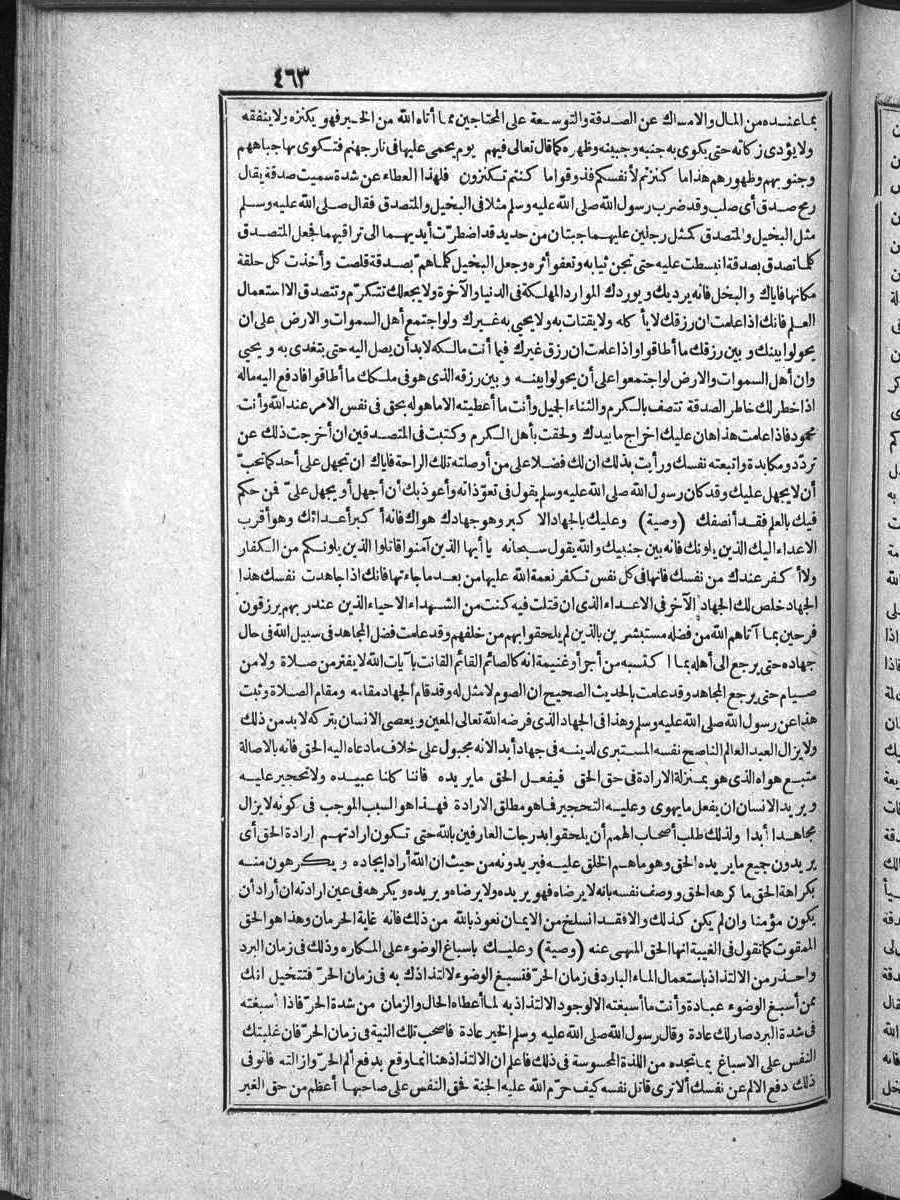 ٤٦٣
بما عنده من المال والامساك عن الصدقة والتوسعة على المحتاجين مما أتاه الله من الخير فهو يكنزه ولا ينفقه
ولا يؤدى زكاته حتى يكوى به جنبه وجبينه وظهره كما قال تعالى فيهم يوم يحمى عليها فى نار جهنم فتكوى بها جباههم
وجنوبهم وظهورهم هذا ما كنزتم لأنفسكم فذوقوا ما كنتم تكنزون فلهذا العطاء عن شدة سميت صدقة يقال
رمح صدق أى صلب وقد ضرب رسول الله صلى الله عليه وسلم مثلا فى البخيل والمتصدق فقال صلى الله عليه وسلم
مثل البخيل والمتصدق كمثل رجلين عليهما جبتان من حديد قد اضطرّت أيديهما الى تراقيهما فجعل المتصدق
كلما تصدق بصدقة انبسطت عليه حتى تجن ثيابه وتعفو أثره وجعل البخيل كلما همّ بصدقة قلصت وأخذت كل حلقة
مكانها فاياك والبخل فانه يرديك ويوردك الموارد المهلكة فى الدنيا والآخرة ولا يجعلك تتكرّم وتتصدق الا استعمال
العلم فانك اذا علمت ان رزقك لا يأكله ولا يقتات به ولا يحيى به غيرك ولو اجتمع أهل السموات والارض على ان
يحولوا بينك وبين رزقك ما أطاقوا واذا علمت ان رزق غيرك فيما أنت مالكه لابد أن يصل اليه حتى يتغدى به ويحيى
وان أهل السموات والارض لو اجتمعوا على أن يحولوا بينه وبين رزقه الذى هو فى ملكك ما أطاقوا فادفع اليه ماله
اذا خطر لك خاطر الصدقة تتصف بالكرم والثناء الجميل وأنت ما أعطيته الا ما هو له بحق فى نفس الامر عند الله وأنت
محمود فاذا علمت هذا هان عليك اخراج ما بيدك ولحقت بأهل الكرم وكتبت فى المتصدقين ان أخرجت ذلك عن
تردّد ومكابدة واتبعته نفسك ورأيت بذلك ان لك فضلا على من أوصلته تلك الراحة فاياك ان تجهل على أحد كما تحبّ
أن لا يجهل عليك وقد كان رسول الله صلى الله عليه وسلم يقول فى تعوّذاته وأعوذ بك أن أجهل أو يجهل علىّ فمن حكم
فيك بالعلم فقد أنصفك (وصية) وعليك بالجهاد الاكبر وهو جهادك هواك فانه أكبر أعدائك وهو أقرب
الاعداء اليك الذين يلونك فانه بين جنبيك والله يقول سبحانه يا أيها الذين آمنوا قاتلوا الذين يلونكم من الكفار
ولا أكفر عندك من نفسك فانها فى كل نفس تكفر نعمة الله عليها من بعد ما جاءتها فانك اذا جاهدت نفسك هذا
الجهاد خلص لك الجهاد الآخر فى الاعداء الذى ان قتلت فيه كنت من الشهداء الاحياء الذين عند ربهم يرزقون
فرحين بما آتاهم الله من فضله مستبشرين بالذين لم يلحقوا بهم من خلفهم وقد علمت فضل المجاهد فى سبيل الله فى حال
جهاده حتى يرجع الى أهله بما اكتسبه من أجر أو غنيمة انه كالصائم القائم القانت بآيات الله لا يفتر من صلاة ولا من
صيام حتى يرجع المجاهد وقد علمت بالحديث الصحيح ان الصوم لا مثل له وقد قام الجهاد مقامه ومقام الصلاة وثبت
هذا عن رسول الله صلى الله عليه وسلم وهذا فى الجهاد الذى فرضه الله تعالى المعين ويعصى الانسان بتركه لابد من ذلك
ولا يزال العبد العالم الناصح نفسه المستبرى لدينه فى جهاد أبدا لانه مجبول على خلاف ما دعاه اليه الحق فانه بالاصالة
متبع هواه الذى هو بمنزلة الارادة فى حق الحق فيفعل الحق ما يريده فاننا كلنا عبيده ولا تحجير عليه
ويريد الانسان ان يفعل ما يهوى وعليه التحجير فما هو مطلق الارادة فهذا هو السبب الموجب فى كونه لا يزال
مجاهدا أبدا ولذلك طلب أصحاب الهمم أن يلحقوا بدرجات العارفين بالله حتى تكون ارادتهم ارادة الحق أى
يريدون جميع ما يريده الحق وهو ما هم الخلق عليه فيريدونه من حيث ان الله أراد ايجاده ويكرهون منه
بكراهة الحق ما كرهه الحق ووصف نفسه بانه لا يرضاه فهو يريده ولا يرضاه ويريده ويكرهه فى عين ارادته ان أراد أن
يكون مؤمنا وان لم يكن كذلك والا فقد انسلخ من الايمان نعوذ بالله من ذلك فانه غاية الحرمان وهذا هو الحق
الممقوت كما نقول فى الغيبة انها الحق المنهى عنه (وصية) وعليك باسباغ الوضوء على المكاره وذلك فى زمان البرد
واحذر من الالتذاذ باستعمال الماء البارد فى زمان الحرّ فتسبغ الوضوء لالتذاذك به فى زمان الحرّ فتتخيل انك
ممن أسبغ الوضوء عبادة وأنت ما أسبغته الا لوجود الالتذاذ به لما أعطاه الحال والزمان من شدة الحرّ فاذا أسبغته
فى شدة البرد صار لك عادة وقال رسول الله صلى الله عليه وسلم الخير عادة فاصحب تلك النية فى زمان الحرّ فان غلبتك
النفس على الاسباغ بما تجده من اللذة المحسوسة فى ذلك فاعلم ان الالتذاذ هنا انما وقع بدفع ألم الحرّ وازالته فانو فى
ذلك دفع الالم عن نفسك ألا ترى قاتل نفسه كيف حرّم الله عليه الجنة فحق النفس على صاحبها أعظم من حق الغير